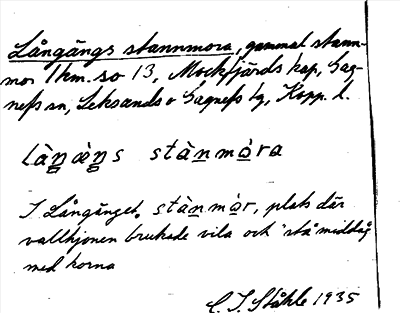 Långängs stannmora, gammal stann-
mo 1 km. so 13, Mockfjärds kap, Gag-
nefs sn, Leksands o Gagnefs tg, Kopp. l.
làŋæ̀ŋs stànmòra
I Långänget. stànmòr, plats där
vallhjonen brukade vila och "stå" middag
med korna
C. I. Ståhle 1935